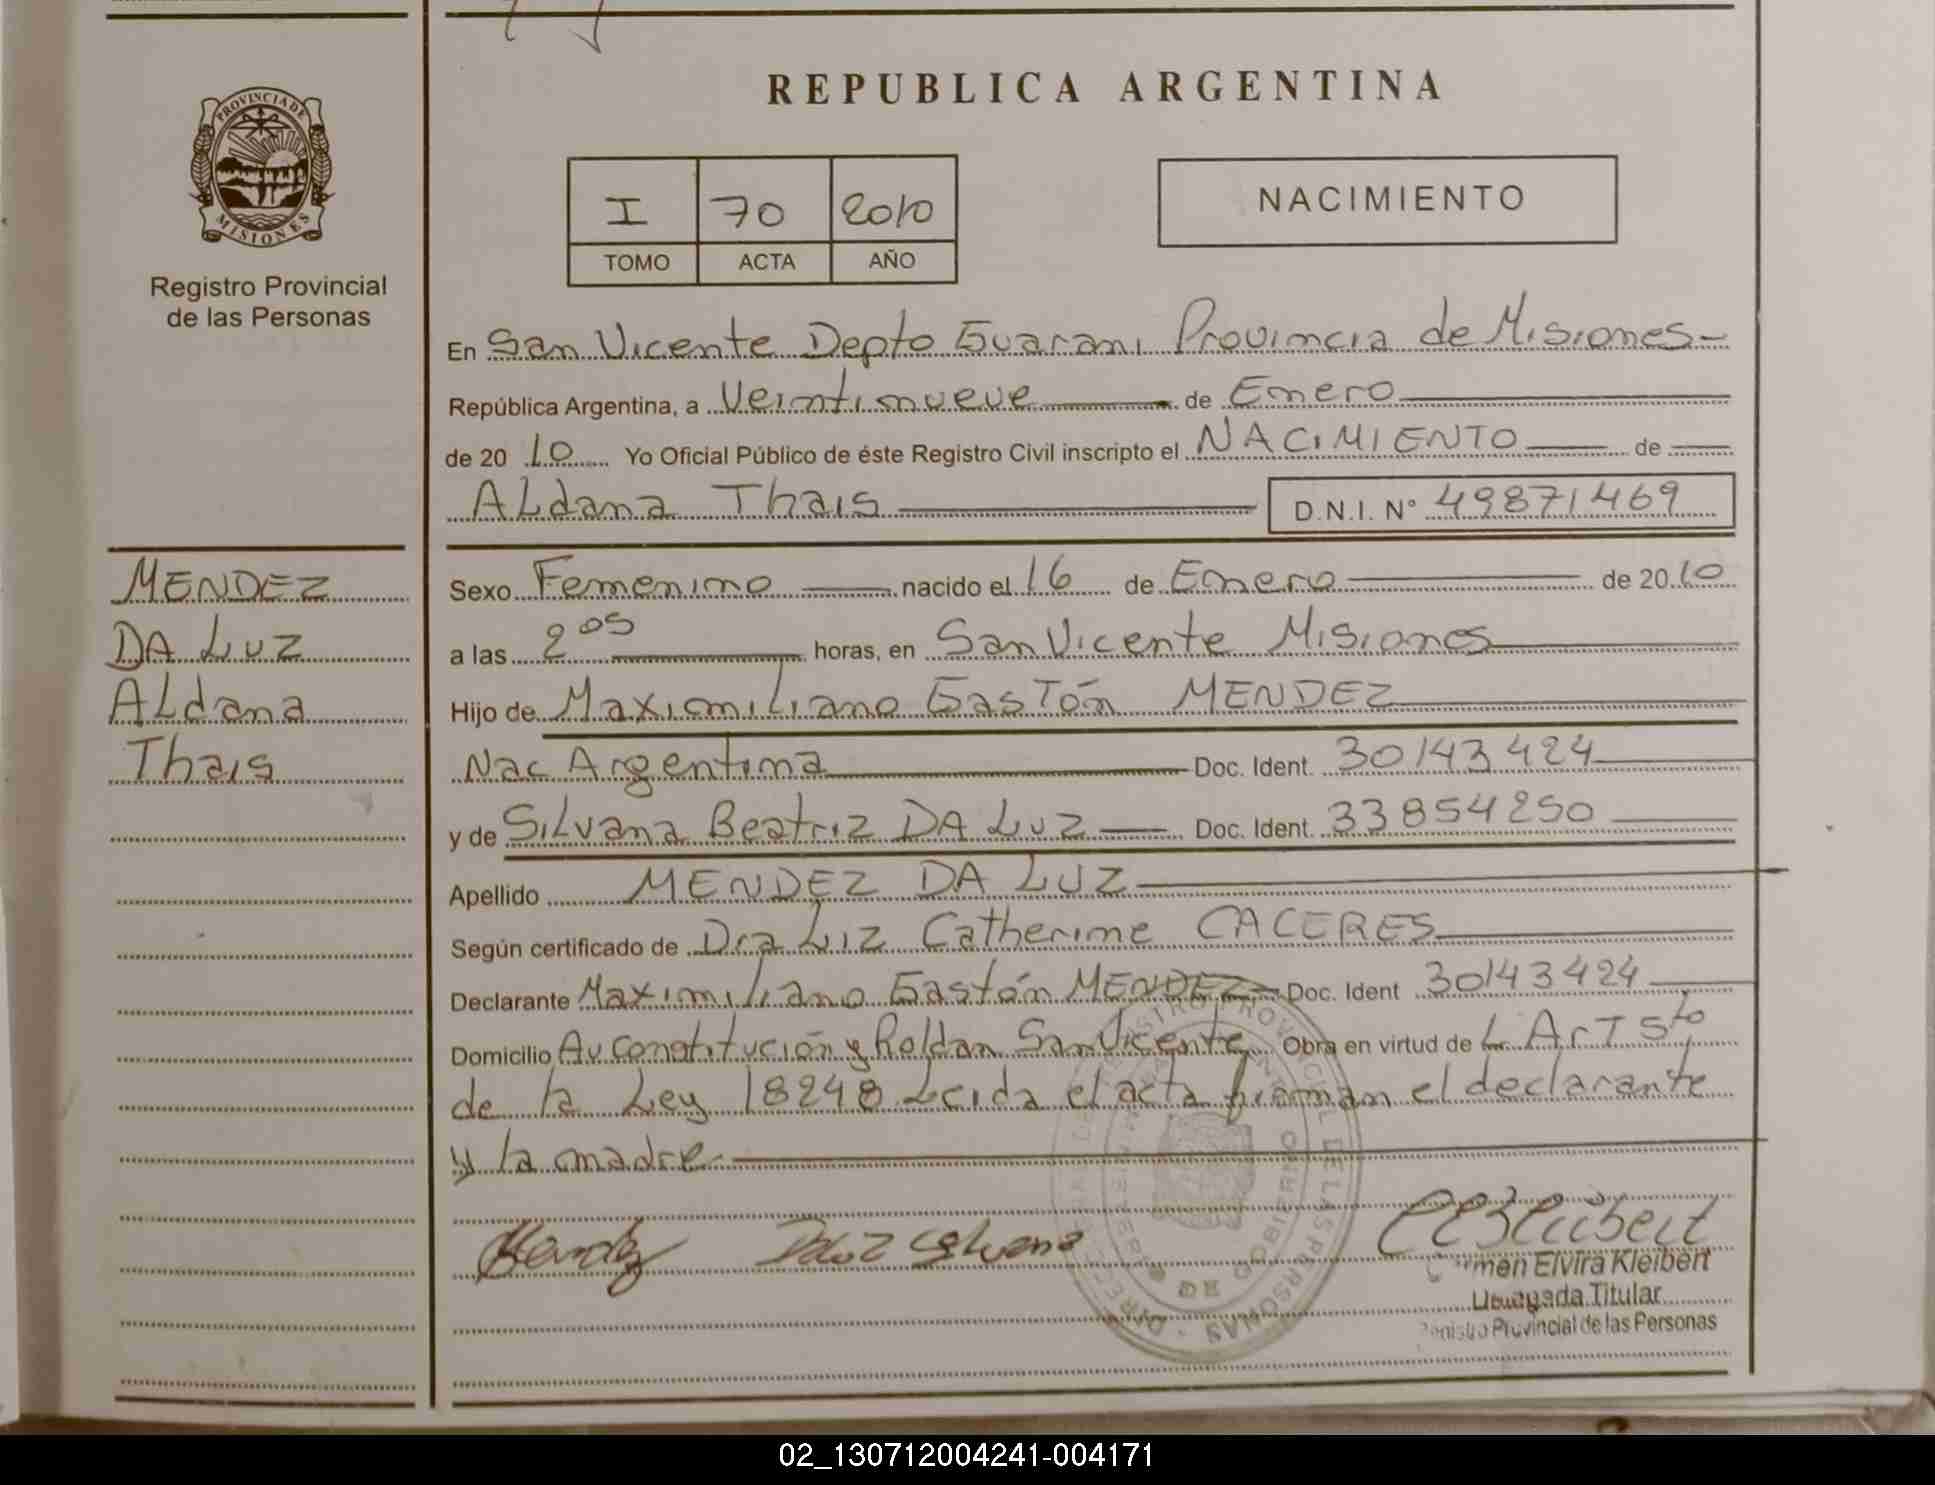 REPUBLICA ARGENTINA
PROVINCIA DE
MISIONES
Registro Provincial
de las Personas
I 70 2010
TOMO ACTA AÑO
NACIMIENTO
En San Vicente Depto Guarani Provincia de Misiones
República Argentina, a Veintinueve de Enero
de 20 10 Yo Oficial Público de éste Registro Civil inscripto el NACIMIENTO de
ALdana Thais D.N.I. N° 49871469
MENDEZ
DA LUZ
ALdana
Thais
Sexo Femenino nacido el 16 de Enero de 20 10
a las 2 05 horas, en San Vicente Misiones
Hijo de Maximiliano Gastón MENDEZ
Nac Argentina Doc. Ident. 30143424
y de Silvana Beatriz DA LUZ Doc. Ident. 33854250
Apellido MENDEZ DA LUZ
Según certificado de Dra Liz Catherine CACERES
Declarante Maximiliano Gastón MENDEZ Doc. Ident 30143424
Domicilio Av Constitución y Roldan San Vicente Obra en virtud de L ArT 5to
de la Ley 18248 Leida el acta firman el declarante
y la madre
Mendez DaLuz Silvana
Carmen Elvira Kleibert
Delegada Titular
Registro Provincial de las Personas
02_130712004241-004171